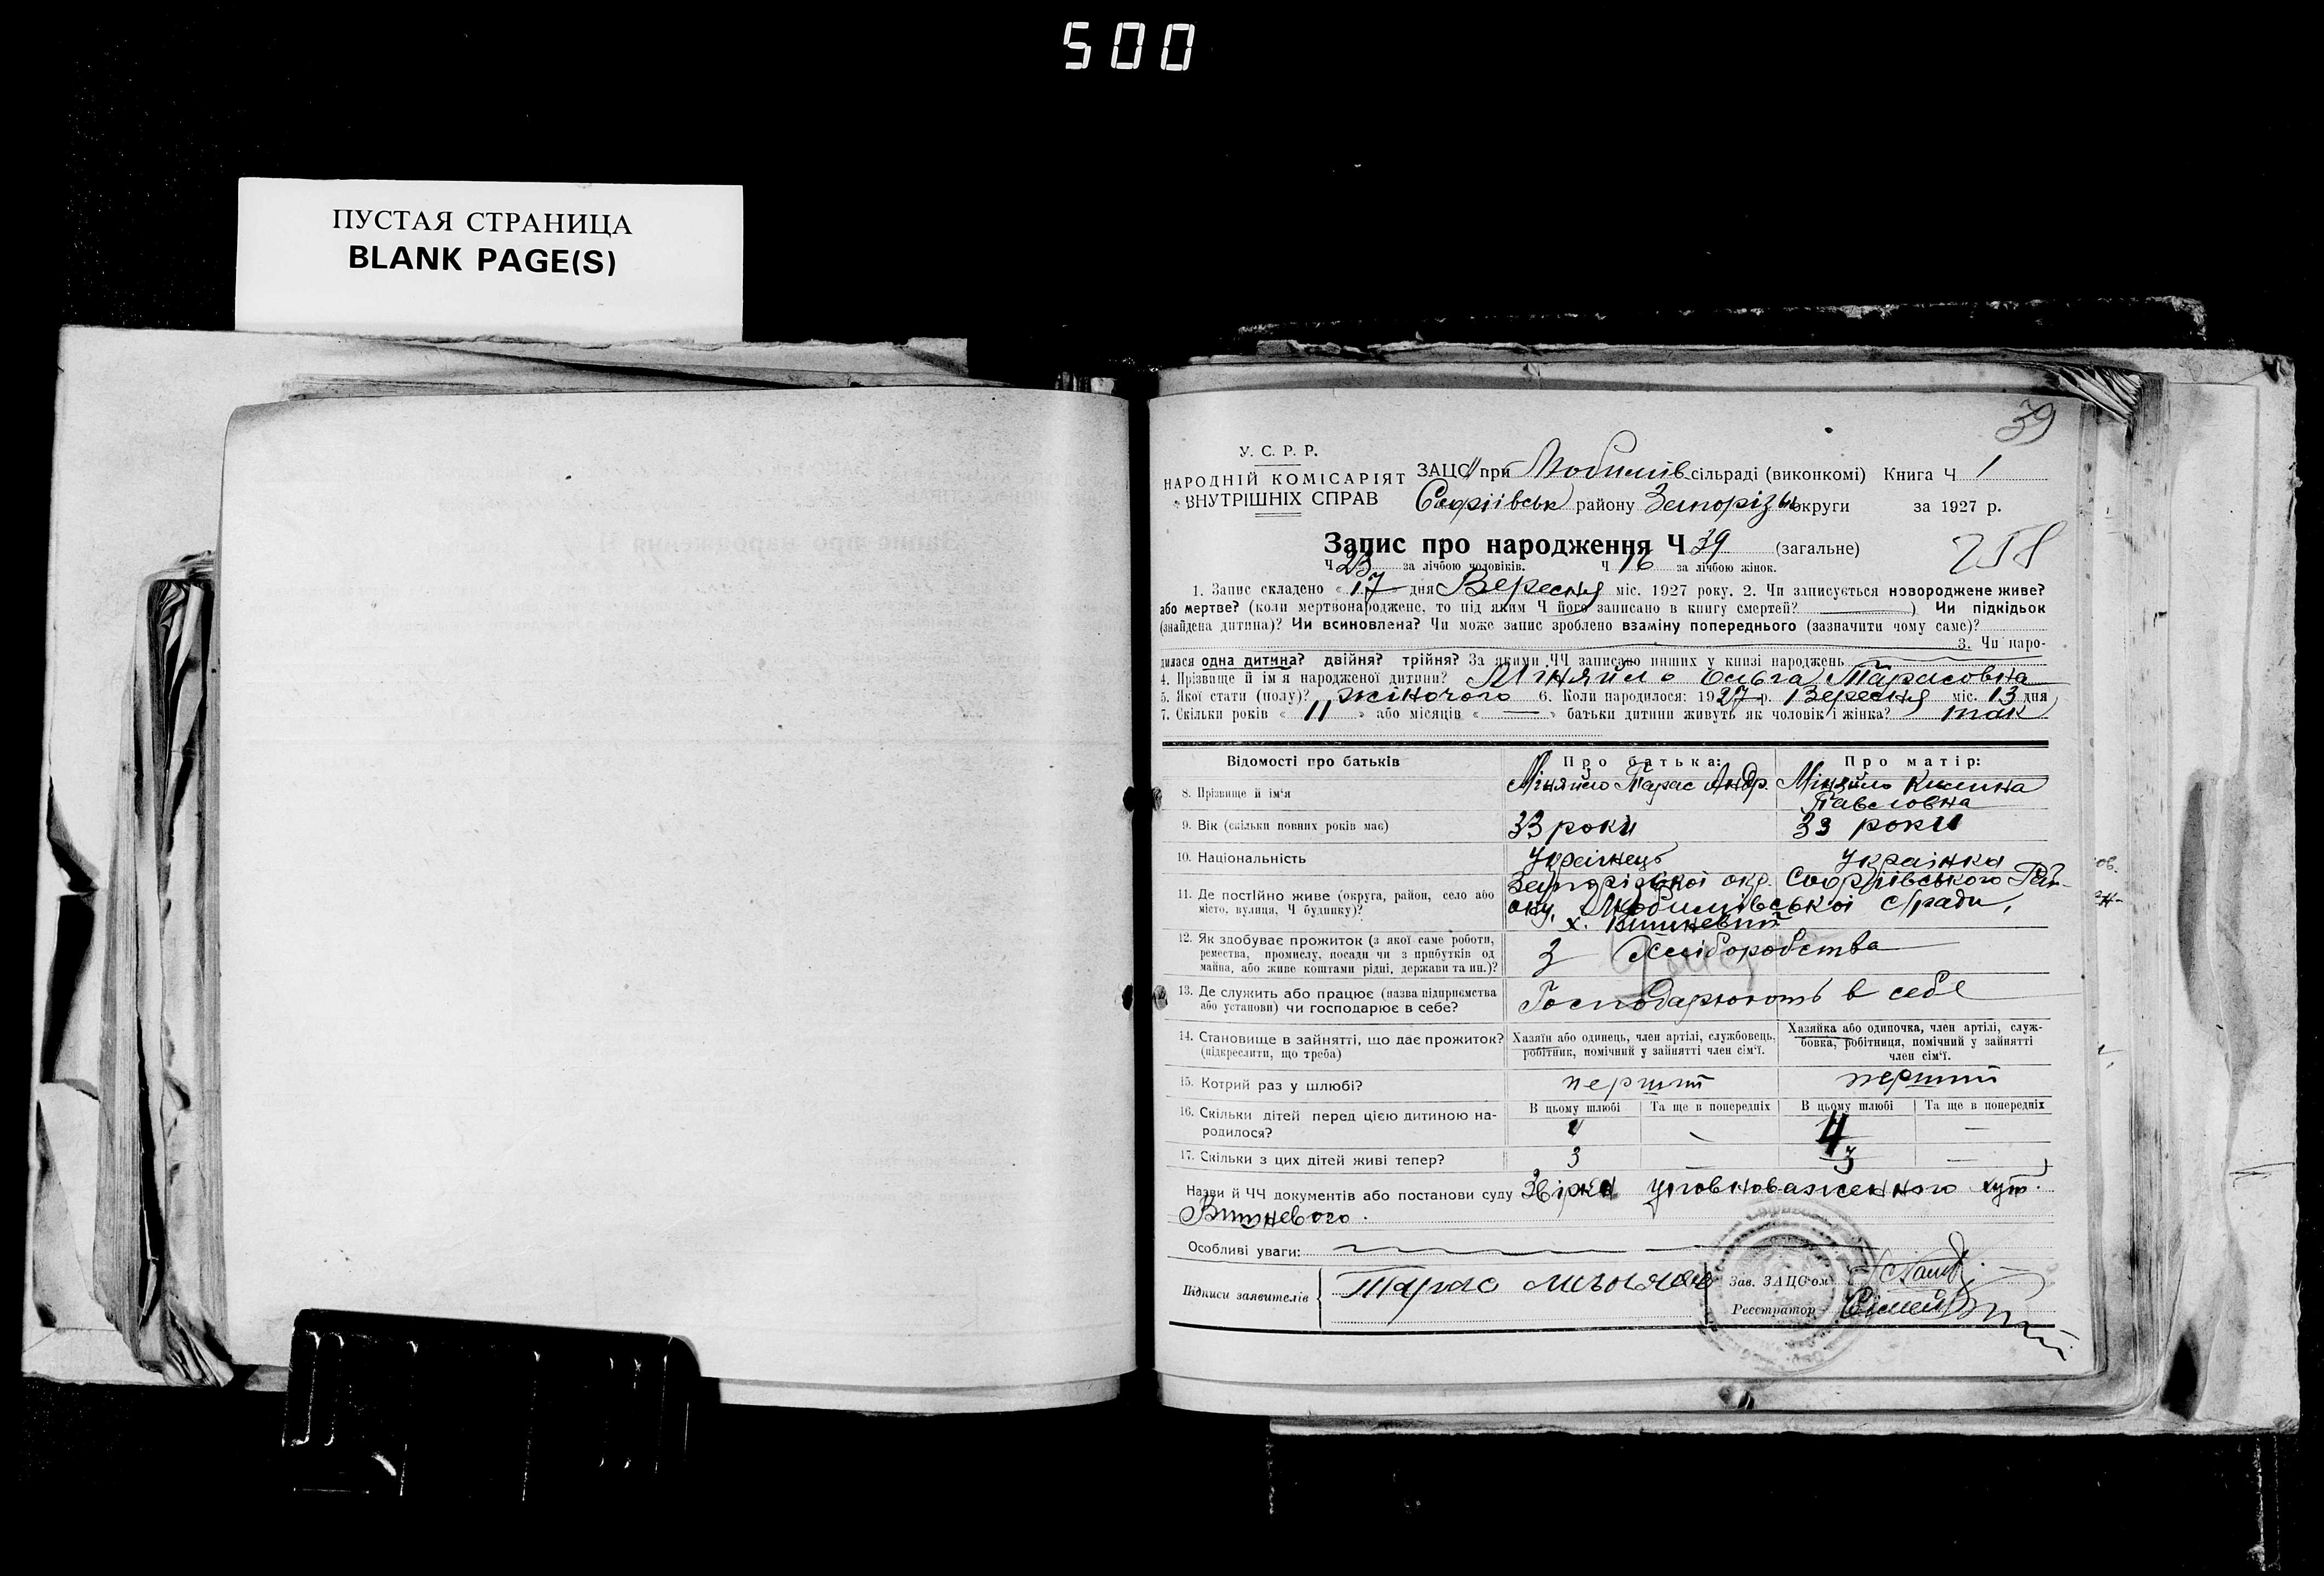 500
ПУСТАЯ СТРАНИЦА
BLANK PAGE(S)
39
У. С. Р. Р.
НАРОДНІЙ КОМІСАРІЯТ
ВНУТРІШНІХ СПРАВ
ЗАЦС при Любимів сільраді (виконкомі) Книга Ч 1
Софіївськ району Запоріз округи за 1927 р.
Запис про народження Ч 39 (загальне)
258
Ч 23 за лічбою чоловіків. Ч 16 за лічбою жінок.
1. Запис складено « 17 дня Вересня міс. 1927 року. 2. Чи записується новороджене живе?
або мертве? (коли мертвонароджене, то під яким Ч його записано в книгу смертей? ) Чи підкідьок
(знайдена дитина)? Чи всиновлена? Чи може запис зроблено взаміну попереднього (зазначити чому саме)?
3. Чи наро-
дилася одна дитина? двійня? трійня? За якими ЧЧ записано инших у книзі народжень
4. Прізвище й ім'я народженої дитини? Міняйло Ольга Тарасовна
5. Якої стати (полу)? жіночого 6. Коли народилося: 1927 р. Вересня міс. 13 дня
7. Скільки років « 11 » або місяців « — » батьки дитини живуть як чоловік і жінка? так
Відомості про батьків Про батька: Про матір:
8. Прізвище й ім'я Міняйло Тарас Андр. Міняйло Килина
Павловна
9. Вік (скільки повних років має) 33 роки 33 роки
10. Національність Українець Українка
11. Де постійно живе (округа, район, село або
місто, вулиця, Ч будинку)?
Запорізької окр. Софіївського Рай-
ону, Любимівської с/ради,
х. Вишневий
12. Як здобуває прожиток (з якої саме роботи,
ремества, промислу, посади чи з прибутків од
майна, або живе коштами рідні, держави та ин.)?
З Хліборобства
13. Де служить або працює (назва підприємства
або установи) чи господарює в себе?
Господарюють в себе
14. Становище в зайнятті, що дає прожиток?
(підкреслити, що треба)
Хазяїн або одинець, член артілі, службовець,
робітник, помічний у зайнятті член сім'ї.
Хазяйка або одиночка, член артілі, служ-
бовка, робітниця, помічний у зайнятті
член сім'ї.
15. Котрий раз у шлюбі? перший перший
16. Скільки дітей перед цією дитиною на-
родилося?
В цьому шлюбі Та ще в попередніх В цьому шлюбі Та ще в попередніх
4 — 4 —
17. Скільки з цих дітей живі тепер? 3 — 3 —
Назви й ЧЧ документів або постанови суду Звірка уповноваженного хут.
Вишневого.
Особливі уваги:
Підписи заявителів Тарас
Зав. ЗАЦС'ом
Реєстратор